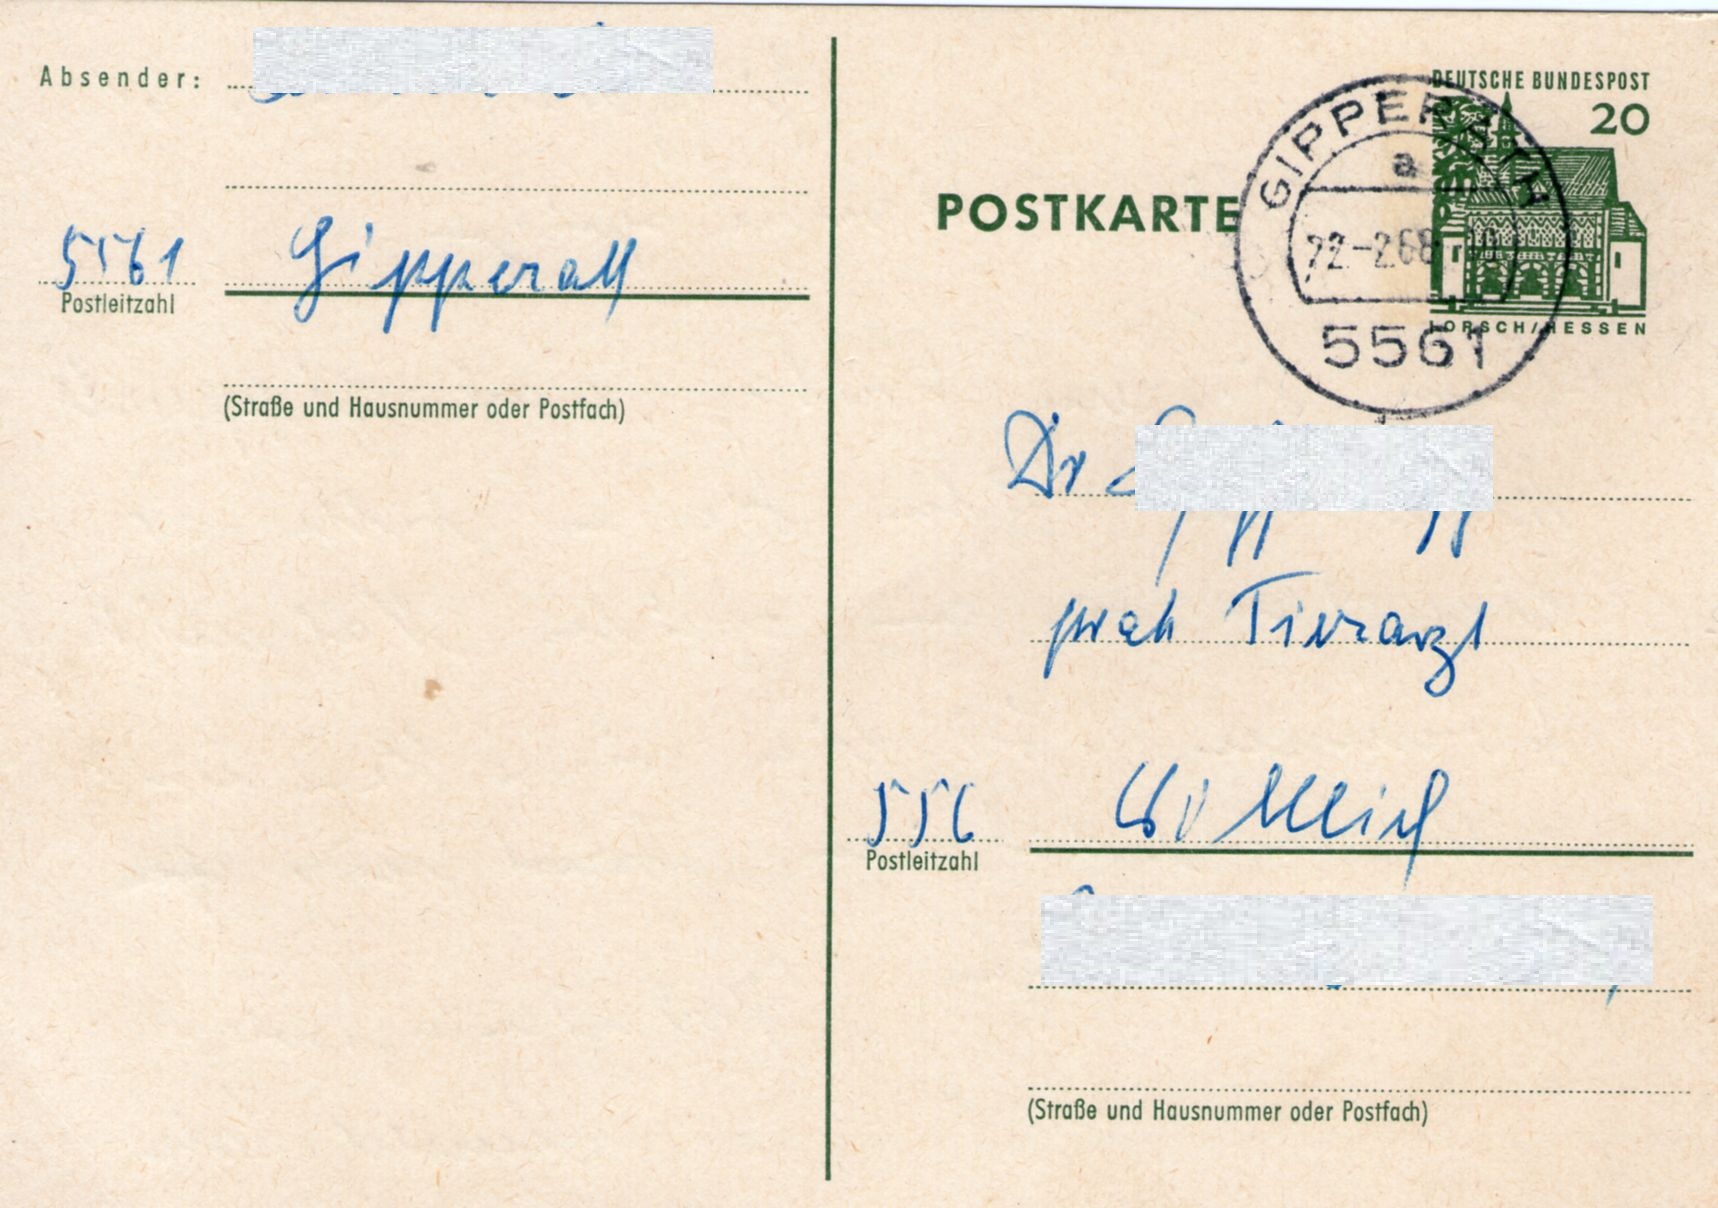 Absender:
5561 Gipperath
Postleitzahl
(Straße und Hausnummer oder Postfach)
DEUTSCHE BUNDESPOST
20
POSTKARTE
LORSCH/HESSEN
GIPPERATH
a
22.-2.68
5561
Dr
prak Tierarzt
556 Wittlich
Postleitzahl
(Straße und Hausnummer oder Postfach)